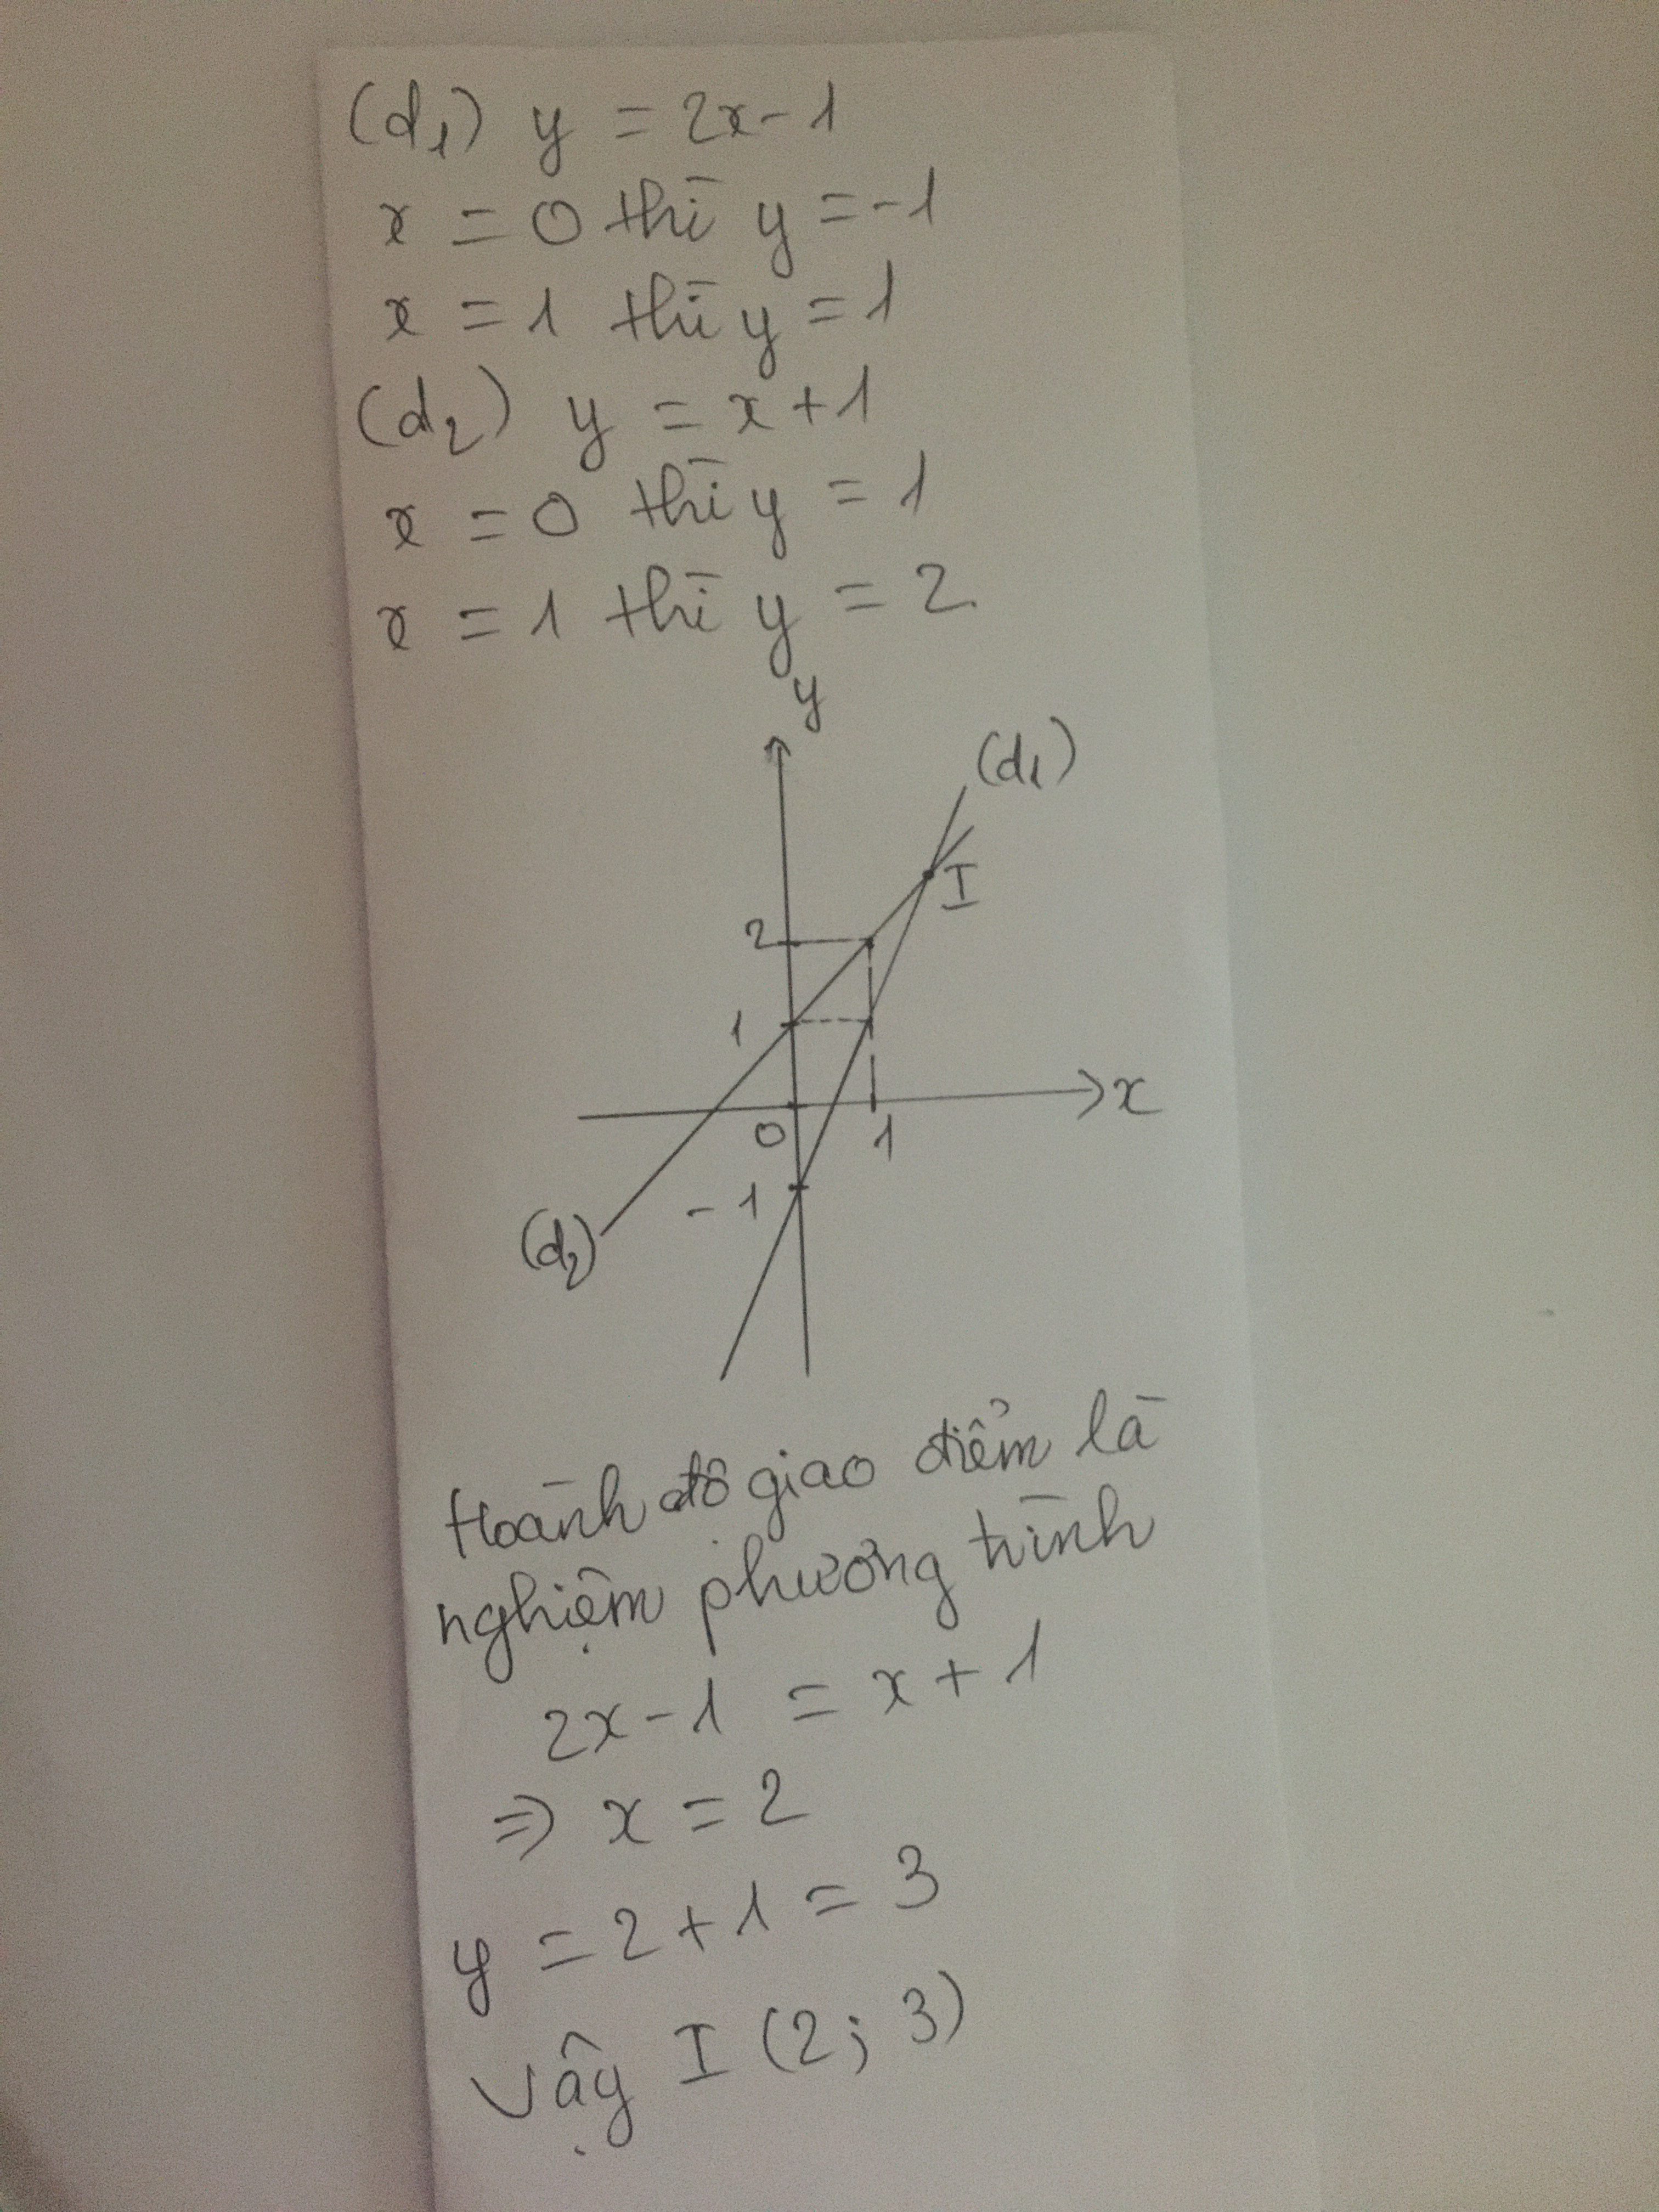 (d₁) y = 2x - 1
x = 0 thì y = -1
x = 1 thì y = 1
(d₂) y = x + 1
x = 0 thì y = 1
x = 1 thì y = 2
y
(d₁)
I
2
1
x
0
1
-1
(d₂)
Hoành độ giao điểm là
nghiệm phương trình
2x - 1 = x + 1
⇒ x = 2
y = 2 + 1 = 3
Vậy I (2; 3)